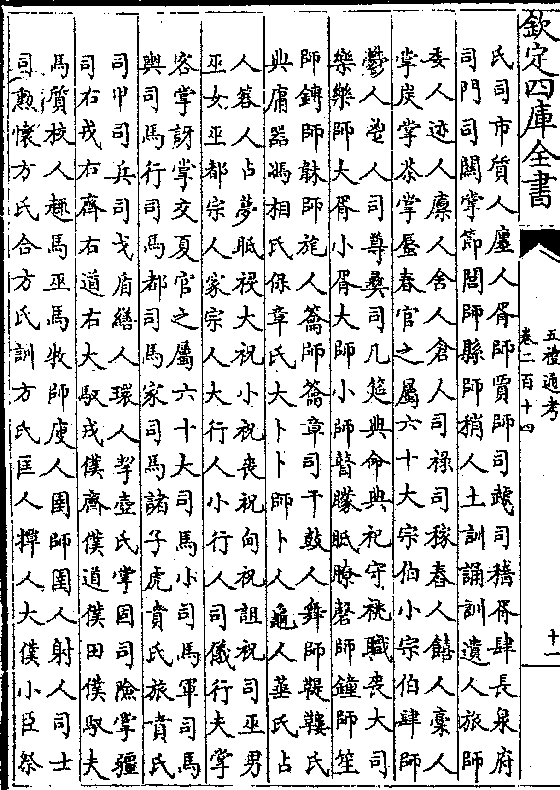 欽定四庫全書
五禮通考
卷二百十四
十一
氏司市質人廛人胥師賈師司虣司稽胥肆長泉府
司門司關掌節閭師縣師稍人土訓誦訓遺人旅師
委人迹人廩人舍人倉人司祿司稼舂人饎人槀人
掌炭掌荼掌蜃春官之屬六十大宗伯小宗伯肆師
鬱人鬯人司尊彝司几筵典命典祀守祧職喪大司
樂樂師大胥小胥大師小師瞽矇眡瞭磬師鐘師笙
師鎛師韎師旄人籥師籥章司干鼓人舞師鞮鞻氏
典庸器馮相氏保章氏大卜卜師卜人龜人菙氏占
人簭人占夢眡祲大祝小祝喪祝甸祝詛祝司巫男
巫女巫都宗人家宗人大行人小行人司儀行夫掌
客掌訝掌交夏官之屬六十大司馬小司馬軍司馬
輿司馬行司馬都司馬家司馬諸子虎賁氏旅賁氏
司甲司兵司戈盾繕人環人挈壺氏掌固司險掌疆
司右戎右齊右道右大馭戎僕齊僕道僕田僕馭夫
馬質校人趣馬巫馬牧師廋人圉師圉人射人司士
司勲懷方氏合方氏訓方氏匡人撢人大僕小臣祭